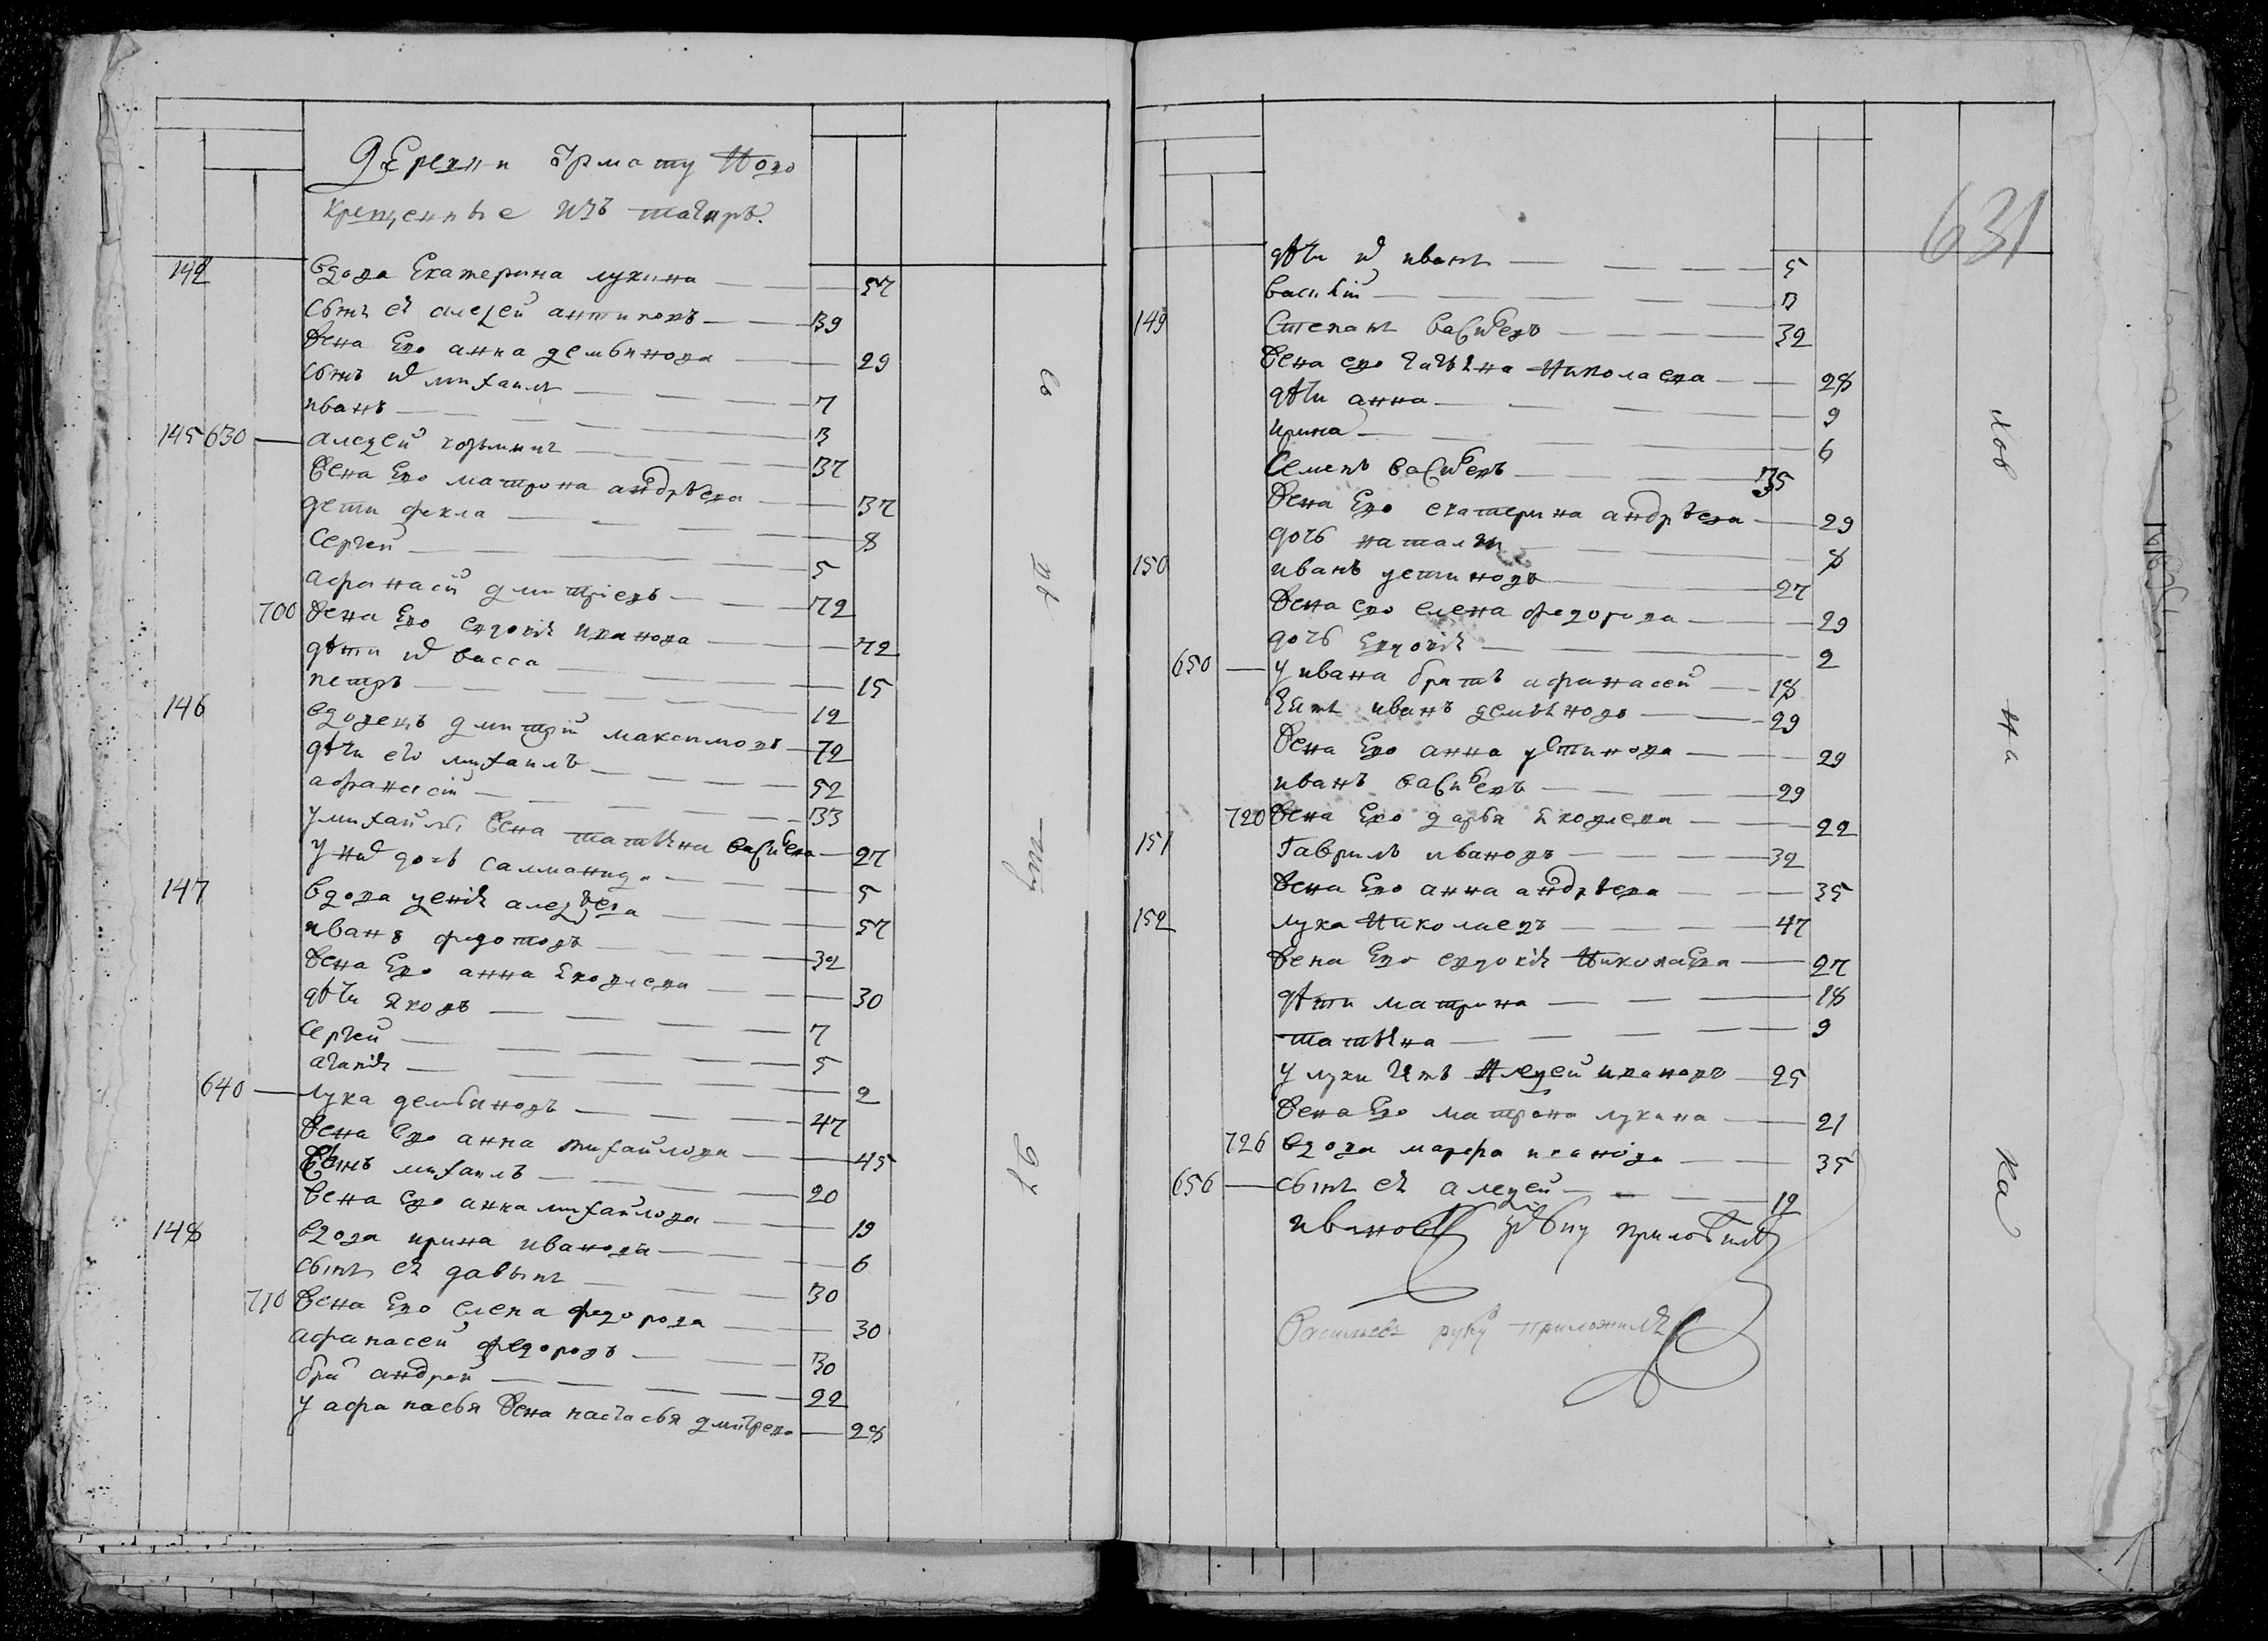 Деревни Ярмату Ново
крещенные изъ татаръ.
142 вдова Екатерина лукина 57
сынъ ей алеѯей антиповъ 39
жена Ево анна дементьева 29
сынъ михаилъ 7
иванъ 3
145 630 алеѯей козьминъ 37
жена Ево матрона андрѣева 37
дети фекла 8
Сергей 5
афанасий дмитріевъ 72
700 жена Ево евдокія иванова 72
дѣти васса 15
петръ 12
146 вдовецъ дмитрій максимовъ 72
дѣти ево михаилъ 52
афанасій 33
у михаилы жена татьяна васильева 27
у ней дочь саламанида 5
147 вдова ѯенія алеѯѣева 57
иванъ федотовъ 32
жена Ево анна Яковлева 30
дѣти Яковъ 7
Сергей 5
агапія 2
640 лука дементьевъ 47
жена Ево анна михайлова 45
сынъ михаилъ 20
жена Ево анна михайлова 19
148 вдова ирина иванова 6
сынъ ея давыдъ 30
710 жена Ево елена федорова 30
афанасей федоровъ 30
братъ андрей 22
у афанасья жена настасья дмитрева 28
Со
въ
ту
631
дѣти иванъ 5
василій 3
149 Степанъ васильевъ 32
жена ево татьяна Николаева 28
дѣти анна 9
ирина 6
Семенъ васильевъ 35
жена Ево екатерина андрѣева 29
дочь наталья 8
150 иванъ устиновъ 27
жена ево елена федорова 29
дочь Евдокія 2
650 у ивана братъ афанасей 18
зять иванъ дементьевъ 29
жена Ево анна устинова 29
иванъ васильевъ 29
720 жена Ево дарья Яковлева 22
151 Гаврилъ ивановъ 32
жена Ево анна андрѣева 35
152 лука Николаевъ 47
жена Ево евдокія Николаева 27
дѣти матрона 18
татьяна 9
у луки зять Алеѯей ивановъ 25
жена Ево матрона лукина 21
726 вдова марфа иванова 35
656 сынъ ея алеѯей 12
ивановъ руку приложилъ
Васильевъ руку приложилъ
ков
ни
ка